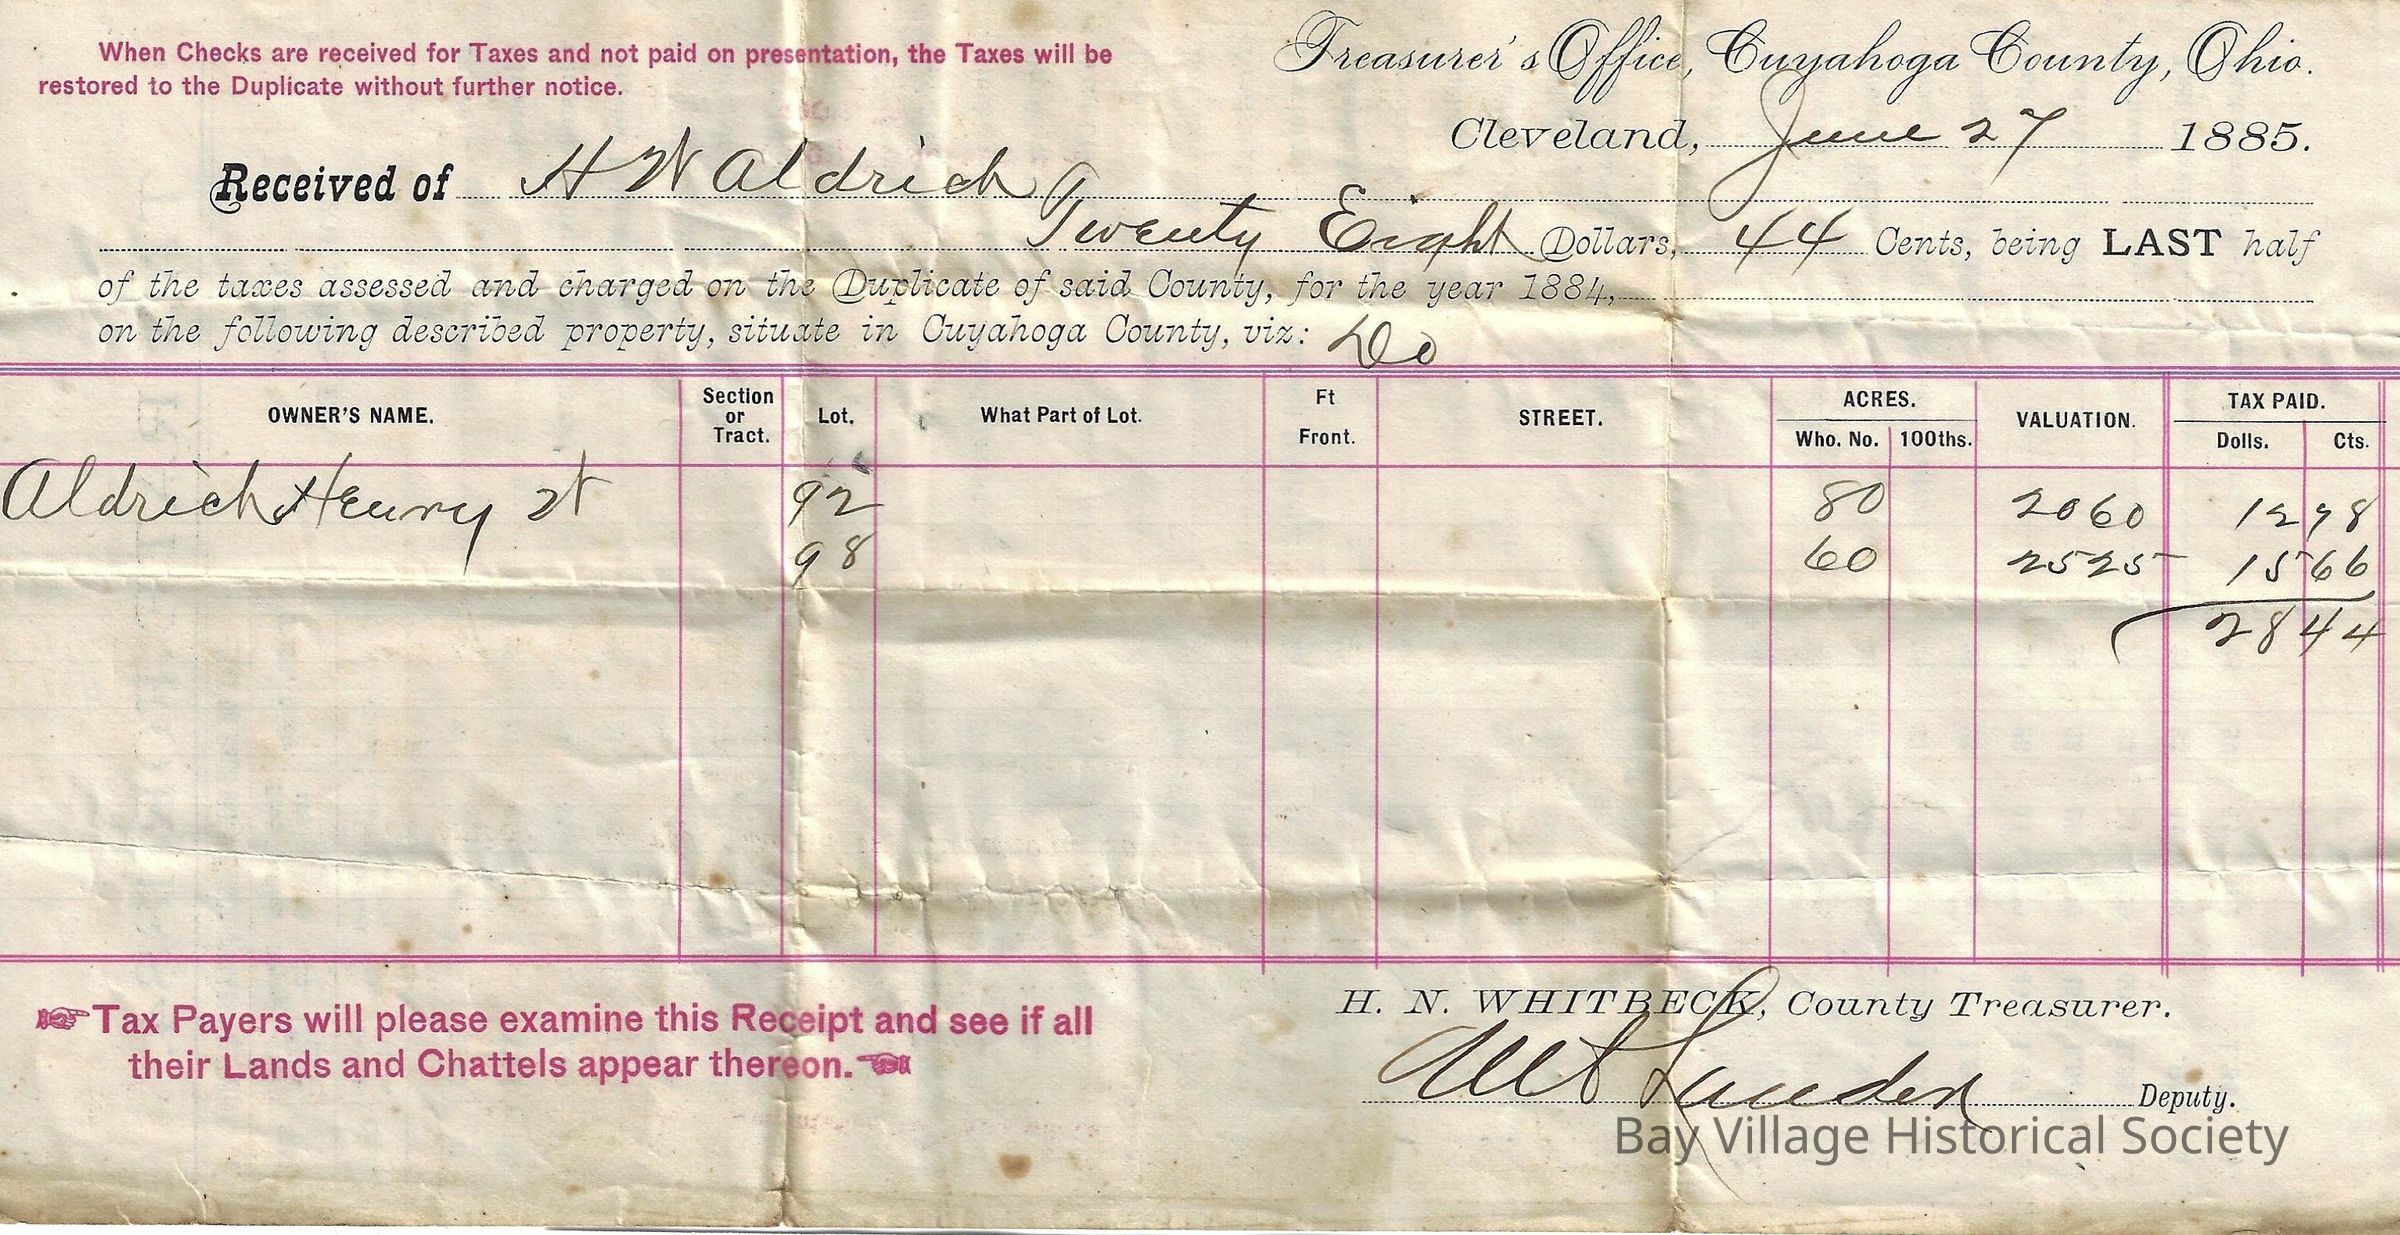 When Checks are received for Taxes and not paid on presentation, the Taxes will be
restored to the Duplicate without further notice.
Treasurer's Office, Cuyahoga County, Ohio.
Cleveland, June 27 1885.
Received of H W Aldrich
Twenty Eight Dollars, 44 Cents, being LAST half
of the taxes assessed and charged on the Duplicate of said County, for the year 1884,
on the following described property, situate in Cuyahoga County, viz: Do
OWNER'S NAME. Section or Tract. Lot. What Part of Lot. Ft Front. STREET. ACRES. Who. No. 100ths. VALUATION. TAX PAID. Dolls. Cts.
Aldrich Henry W 92 80 2060 12 78
98 60 2525 15 66
28 44
Tax Payers will please examine this Receipt and see if all
their Lands and Chattels appear thereon.
H. N. WHITBECK, County Treasurer.
Deputy.
Bay Village Historical Society